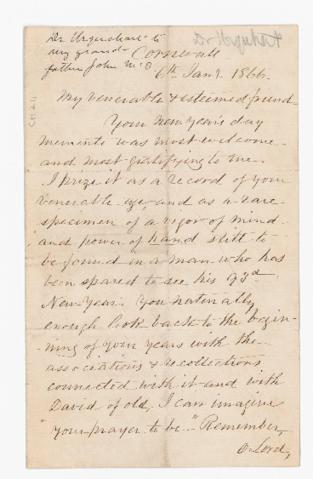 Dr Urquhart to
my grand-
father John McD
Dr Urquhart
Cornwall
6th Jany. 1866.
My venerable & esteemed friend
Your New year's day
memento was most welcome
and most gratifying to me.
I prize it as a record of your
venerable age and as a rare
specimen of a vigor of mind
and power of hand still to
be found in a man who has
been spared to see his 93rd
New Year. You naturally
enough look back to the begin-
-ning of your years with the
associations & recollections
connected with it and with
David of old, I can imagine
your prayer to be - "Remember,
O Lord,